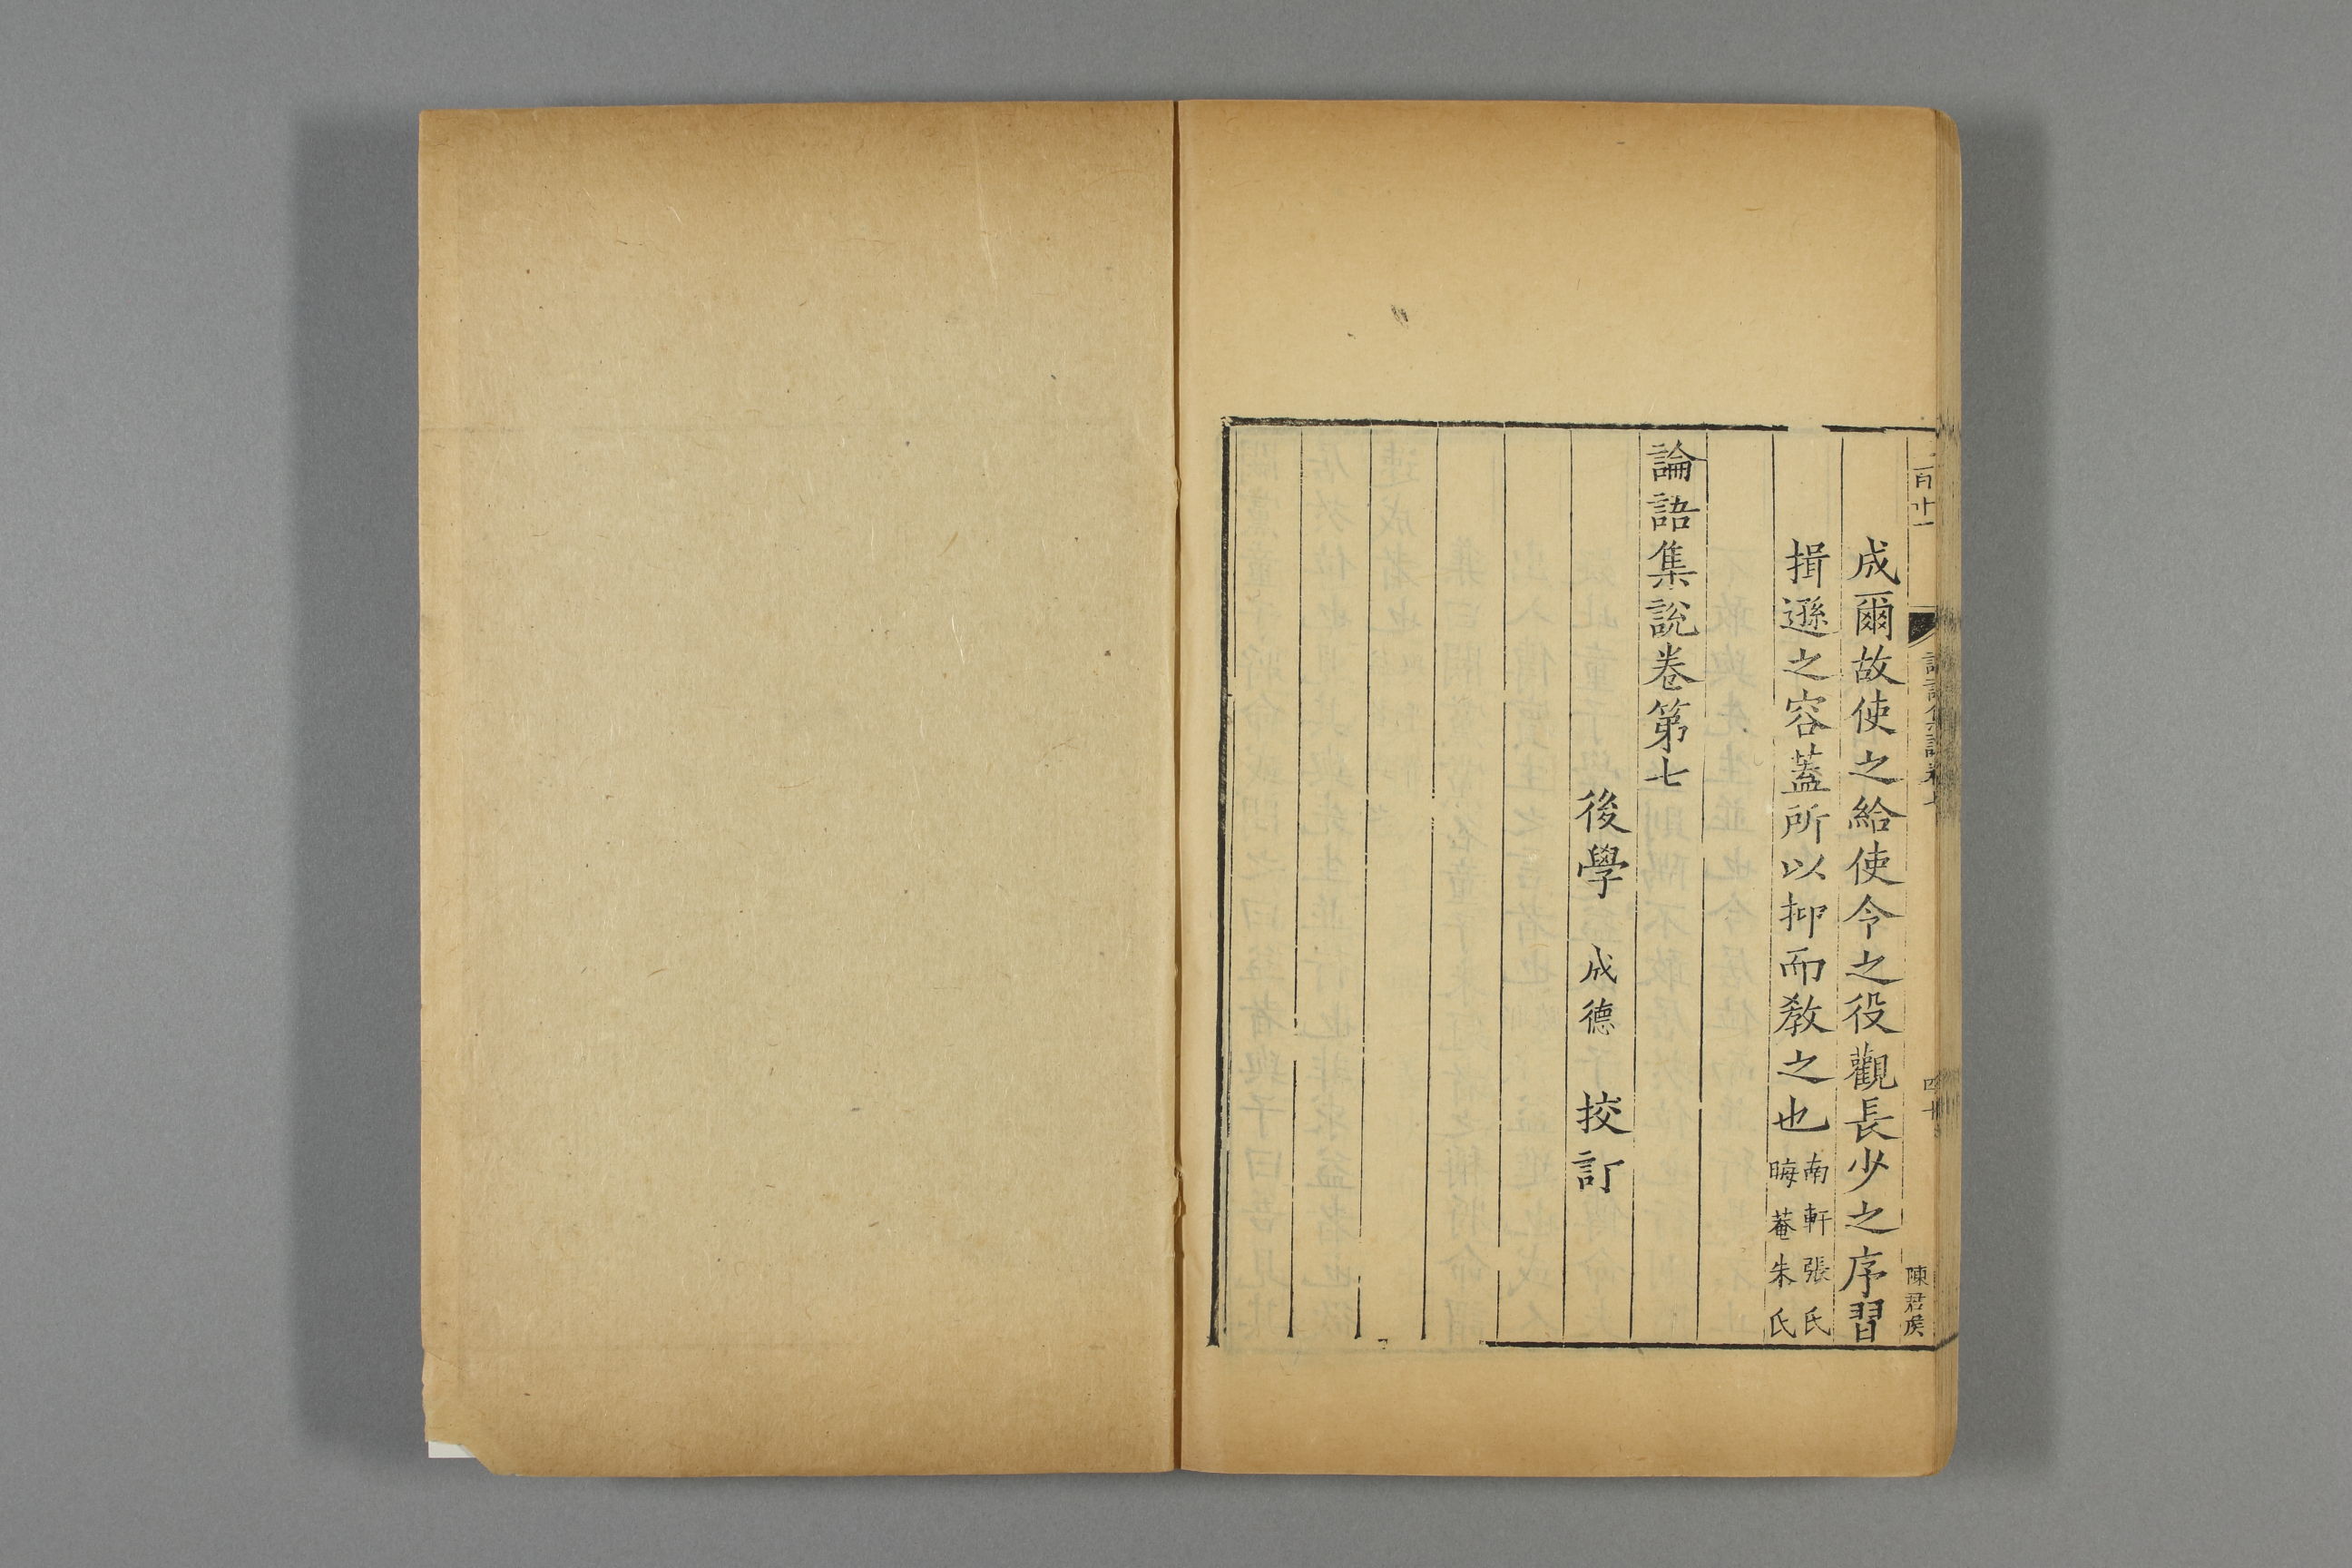 成爾故使之給使令之役觀長少之序習
揖遜之容蓋所以抑而教之也南軒張氏
晦菴朱氏
論語集說卷第七
後學 成德 挍訂
陳君侯